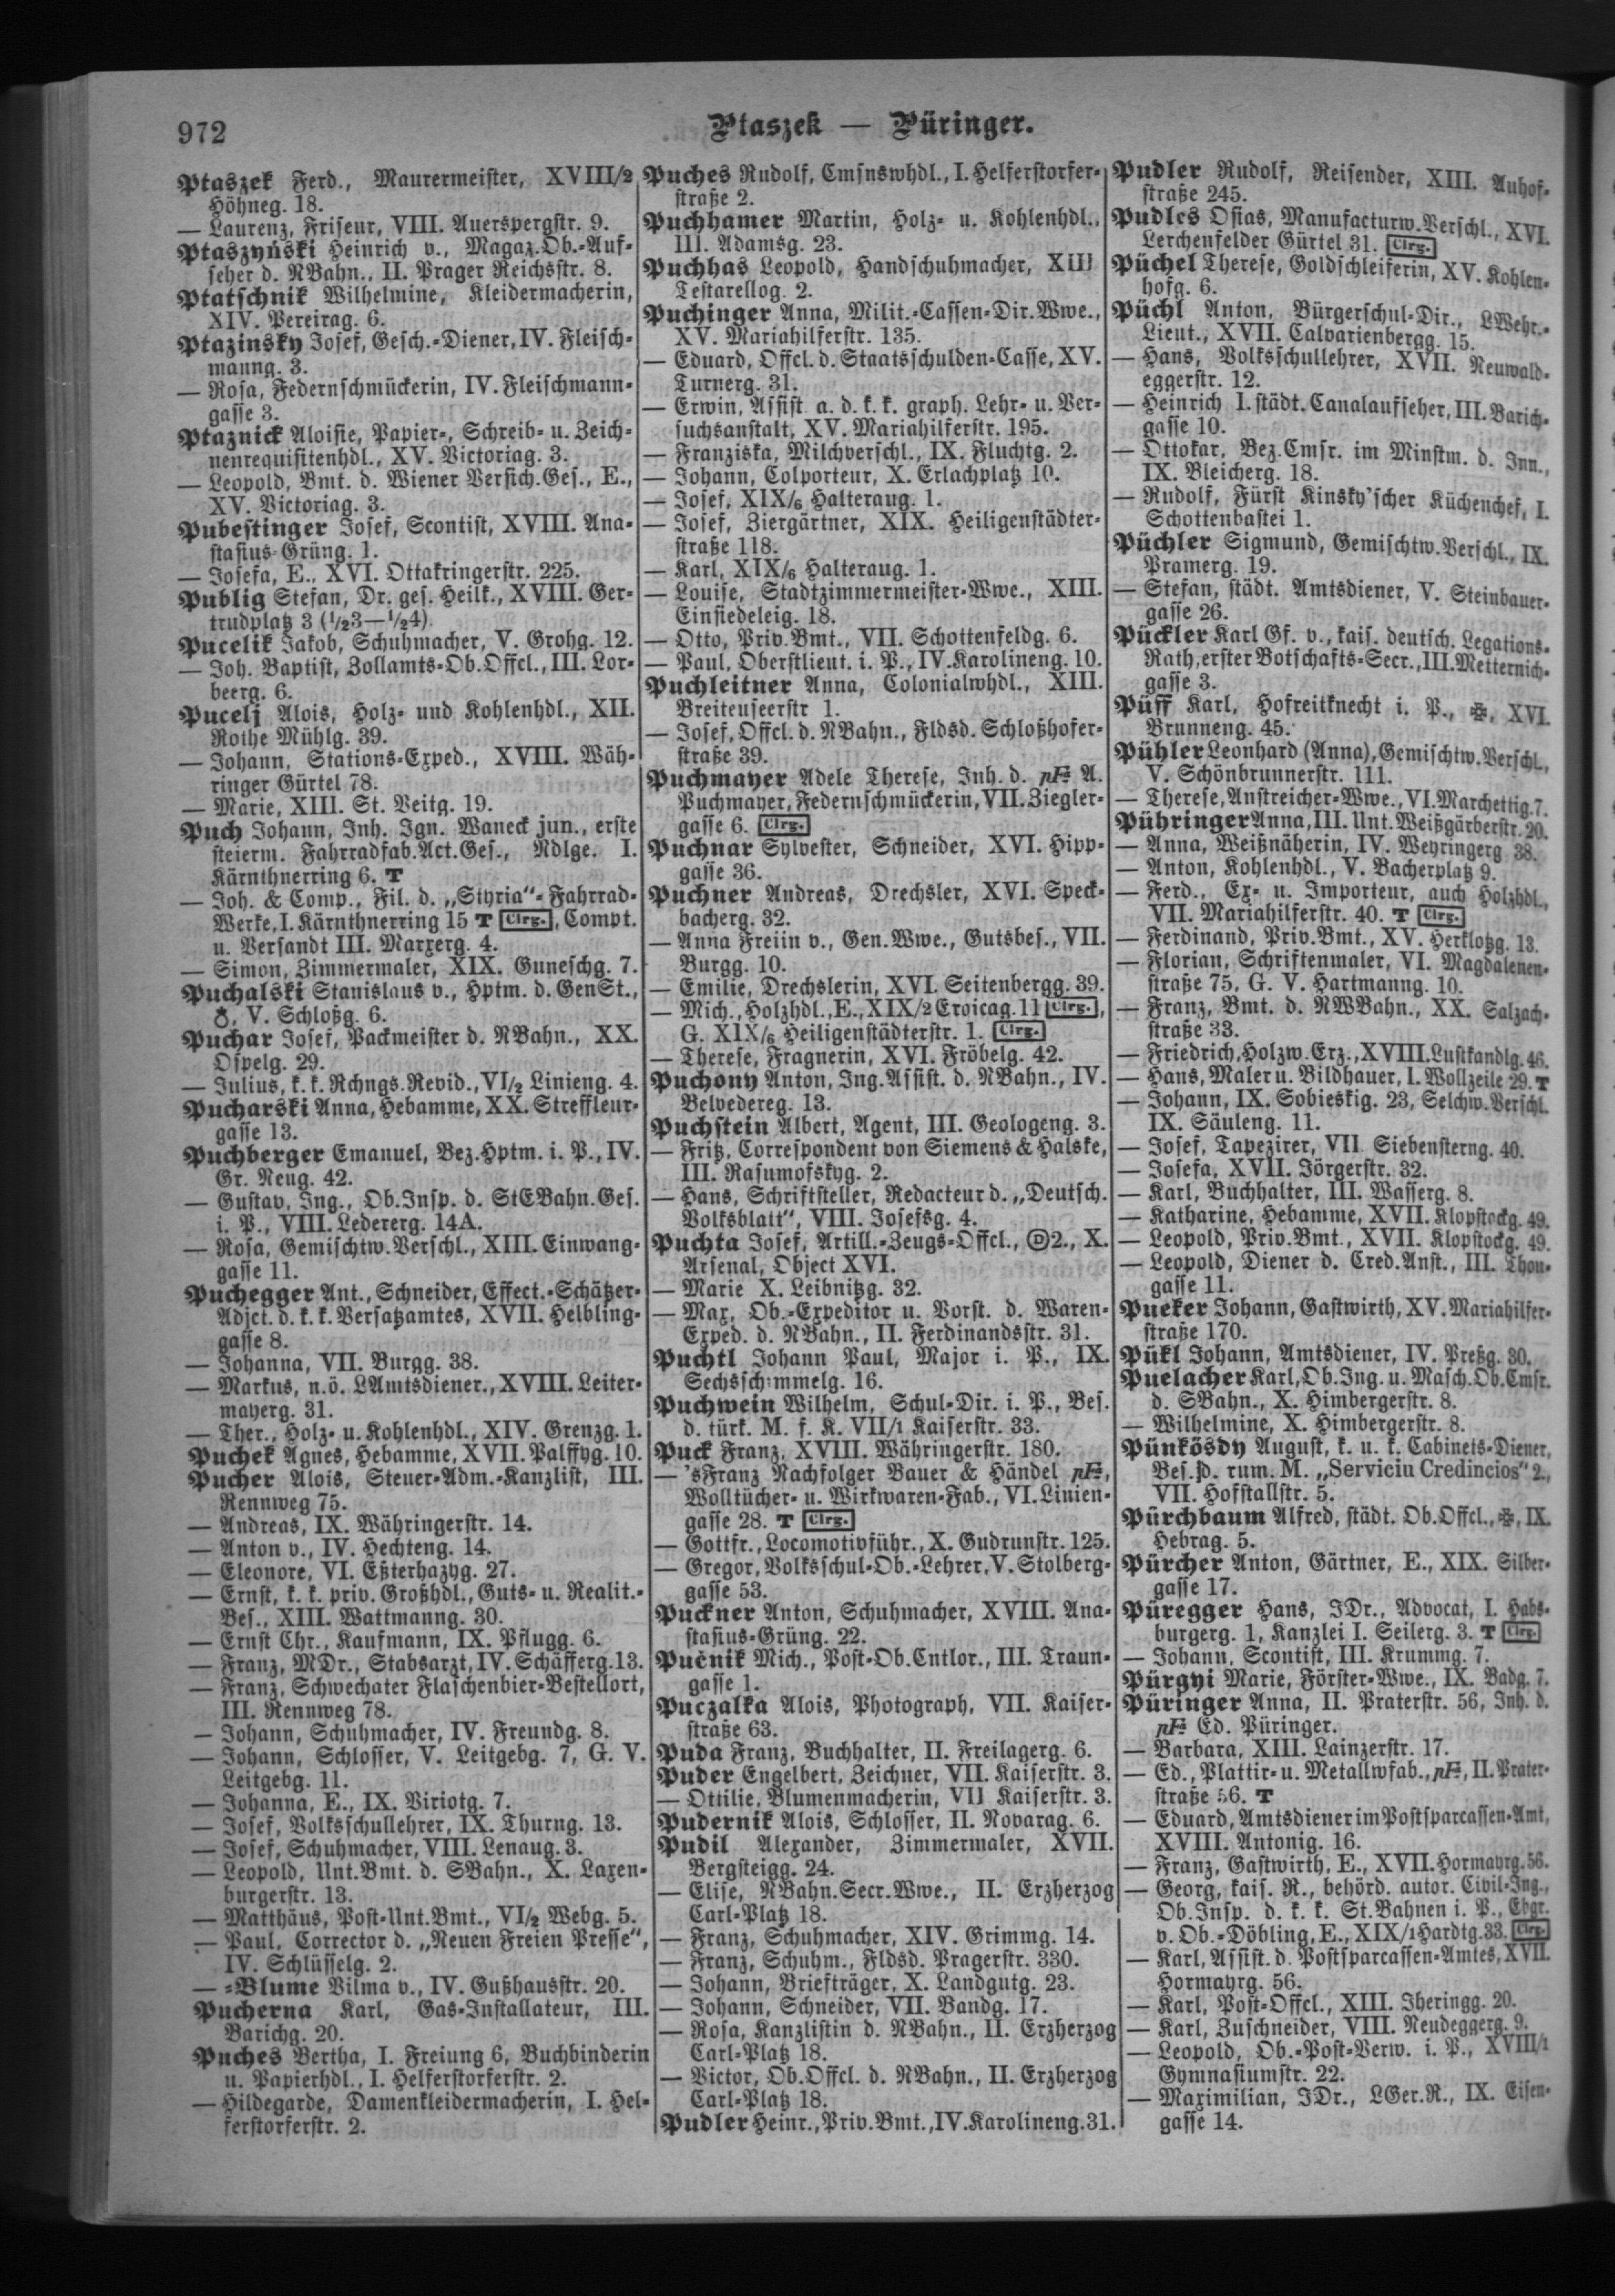 972
Ptaszek — Püringer.
Ptaszek Ferd., Maurermeister, XVIII/2
Höhneg. 18.
— Laurenz, Friseur, VIII. Auerspergstr. 9.
Ptaszyński Heinrich v., Magaz.Ob.-Auf-
seher d. NBahn., II. Prager Reichsstr. 8.
Ptatschnik Wilhelmine, Kleidermacherin,
XIV. Pereirag. 6.
Ptazinsky Josef, Gesch.-Diener, IV. Fleisch-
manng. 3.
— Rosa, Federnschmückerin, IV. Fleischmann-
gasse 3.
Ptaznick Aloisie, Papier-, Schreib- u. Zeich-
nenrequisitenhdl., XV. Victoriag. 3.
— Leopold, Bmt. d. Wiener Versich.Ges., E.,
XV. Victoriag. 3.
Pubestinger Josef, Scontist, XVIII. Ana-
stasius-Grüng. 1.
— Josefa, E., XVI. Ottakringerstr. 225.
Publig Stefan, Dr. ges. Heilk., XVIII. Ger-
trudplatz 3 (1/23—1/24).
Pucelik Jakob, Schuhmacher, V. Grohg. 12.
— Joh. Baptist, Zollamts-Ob.Offcl., III. Lor-
beerg. 6.
Pucelj Alois, Holz- und Kohlenhdl., XII.
Rothe Mühlg. 39.
— Johann, Stations-Exped., XVIII. Wäh-
ringer Gürtel 78.
— Marie, XIII. St. Veitg. 19.
Puch Johann, Inh. Ign. Waneck jun., erste
steierm. Fahrradfab.Act.Ges., Ndlge. I.
Kärnthnerring 6. T
— Joh. & Comp., Fil. d. „Styria“-Fahrrad-
Werke, I. Kärnthnerring 15 T Clrg., Compt.
u. Versandt III. Marxerg. 4.
— Simon, Zimmermaler, XIX. Guneschg. 7.
Puchalski Stanislaus v., Hptm. d. GenSt.,
V. Schloßg. 6.
Puchar Josef, Packmeister d. NBahn., XX.
Ospelg. 29.
— Julius, k. k. Rchngs.Revid., VI/2 Linieng. 4.
Pucharski Anna, Hebamme, XX. Streffleur-
gasse 13.
Puchberger Emanuel, Bez.Hptm. i. P., IV.
Gr. Neug. 42.
— Gustav, Ing., Ob.Insp. d. StEBahn.Ges.
i. P., VIII. Ledererg. 14A.
— Rosa, Gemischtw.Verschl., XIII. Einwang-
gasse 11.
Puchegger Ant., Schneider, Effect.-Schätzer-
Adjct. d. k. k. Versatzamtes, XVII. Helbling-
gasse 8.
— Johanna, VII. Burgg. 38.
— Markus, n.ö. LAmtsdiener., XVIII. Leiter-
mayerg. 31.
— Ther., Holz- u. Kohlenhdl., XIV. Grenzg. 1.
Puchek Agnes, Hebamme, XVII. Palffyg. 10.
Pucher Alois, Steuer-Adm.-Kanzlist, III.
Rennweg 75.
— Andreas, IX. Währingerstr. 14.
— Anton v., IV. Hechteng. 14.
— Eleonore, VI. Eßterhazyg. 27.
— Ernst, k. k. priv. Großhdl., Guts- u. Realit.-
Bes., XIII. Wattmanng. 30.
— Ernst Chr., Kaufmann, IX. Pflugg. 6.
— Franz, MDr., Stabsarzt, IV. Schäfferg. 13.
— Franz, Schwechater Flaschenbier-Bestellort,
III. Rennweg 78.
— Johann, Schuhmacher, IV. Freundg. 8.
— Johann, Schlosser, V. Leitgebg. 7, G. V.
Leitgebg. 11.
— Johanna, E., IX. Viriotg. 7.
— Josef, Volksschullehrer, IX. Thurng. 13.
— Josef, Schuhmacher, VIII. Lenaug. 3.
— Leopold, Unt.Bmt. d. SBahn., X. Laxen-
burgerstr. 13.
— Matthäus, Post-Unt.Bmt., VI/2 Webg. 5.
— Paul, Corrector d. „Neuen Freien Presse“,
IV. Schlüsselg. 2.
— -Blume Vilma v., IV. Gußhausstr. 20.
Pucherna Karl, Gas-Installateur, III.
Barichg. 20.
Puches Bertha, I. Freiung 6, Buchbinderin
u. Papierhdl., I. Helferstorferstr. 2.
— Hildegarde, Damenkleidermacherin, I. Hel-
ferstorferstr. 2.
Puches Rudolf, Cmsnswhdl., I. Helferstorfer-
straße 2.
Puchhamer Martin, Holz- u. Kohlenhdl.,
III. Adamsg. 23.
Puchhas Leopold, Handschuhmacher, XIII
Testarellog. 2.
Puchinger Anna, Milit.-Cassen-Dir.Wwe.,
XV. Mariahilferstr. 135.
— Eduard, Offcl. d. Staatsschulden-Casse, XV.
Turnerg. 31.
— Erwin, Assist a. d. k. k. graph. Lehr- u. Ver-
suchsanstalt, XV. Mariahilferstr. 195.
— Franziska, Milchverschl., IX. Fluchtg. 2.
— Johann, Colporteur, X. Erlachplatz 10.
— Josef, XIX/6 Halteraug. 1.
— Josef, Ziergärtner, XIX. Heiligenstädter-
straße 118.
— Karl, XIX/6 Halteraug. 1.
— Louise, Stadtzimmermeister-Wwe., XIII.
Einsiedeleig. 18.
— Otto, Priv.Bmt., VII. Schottenfeldg. 6.
— Paul, Oberstlieut. i. P., IV. Karolineng. 10.
Puchleitner Anna, Colonialwhdl., XIII.
Breitenseerstr 1.
— Josef, Offcl. d. NBahn., Fldsd. Schloßhofer-
straße 39.
Puchmayer Adele Therese, Inh. d. pF: A.
Puchmayer, Federnschmückerin, VII. Ziegler-
gasse 6. Clrg.
Puchnar Sylvester, Schneider, XVI. Hipp-
gasse 36.
Puchner Andreas, Drechsler, XVI. Speck-
bacherg. 32.
— Anna Freiin v., Gen.Wwe., Gutsbes., VII.
Burgg. 10.
— Emilie, Drechslerin, XVI. Seitenbergg. 39.
— Mich., Holzhdl., E., XIX/2 Eroicag. 11 Clrg.,
G. XIX/6 Heiligenstädterstr. 1. Clrg.
— Therese, Fragnerin, XVI. Fröbelg. 42.
Puchony Anton, Ing.Assist. d. NBahn., IV.
Belvedereg. 13.
Puchstein Albert, Agent, III. Geologeng. 3.
— Fritz, Correspondent von Siemens & Halske,
III. Rasumofskyg. 2.
— Hans, Schriftsteller, Redacteur d. „Deutsch.
Volksblatt“, VIII. Josefsg. 4.
Puchta Josef, Artill.-Zeugs-Offcl., Ⓓ2., X.
Arsenal, Object XVI.
— Marie X. Leibnitzg. 32.
— Max, Ob.-Expeditor u. Vorst. d. Waren-
Exped. d. NBahn., II. Ferdinandsstr. 31.
Puchtl Johann Paul, Major i. P., IX.
Sechsschimmelg. 16.
Puchwein Wilhelm, Schul-Dir. i. P., Bes.
d. türk. M. f. K. VII/1 Kaiserstr. 33.
Puck Franz, XVIII. Währingerstr. 180.
— 'sFranz Nachfolger Bauer & Händel pF:,
Wolltücher- u. Wirkwaren-Fab., VI. Linien-
gasse 28. T Clrg.
— Gottfr., Locomotivführ., X. Gudrunstr. 125.
— Gregor, Volksschul-Ob.-Lehrer, V. Stolberg-
gasse 53.
Puckner Anton, Schuhmacher, XVIII. Ana-
stasius-Grüng. 22.
Pučnik Mich., Post-Ob.Cntlor., III. Traun-
gasse 1.
Puczalka Alois, Photograph, VII. Kaiser-
straße 63.
Puda Franz, Buchhalter, II. Freilagerg. 6.
Puder Engelbert, Zeichner, VII. Kaiserstr. 3.
— Ottilie, Blumenmacherin, VII Kaiserstr. 3.
Pudernik Alois, Schlosser, II. Novarag. 6.
Pudil Alexander, Zimmermaler, XVII.
Bergsteigg. 24.
— Elise, NBahn.Secr.Wwe., II. Erzherzog
Carl-Platz 18.
— Franz, Schuhmacher, XIV. Grimmg. 14.
— Franz, Schuhm., Fldsd. Pragerstr. 330.
— Johann, Briefträger, X. Landgutg. 23.
— Johann, Schneider, VII. Bandg. 17.
— Rosa, Kanzlistin d. NBahn., II. Erzherzog
Carl-Platz 18.
— Victor, Ob.Offcl. d. NBahn., II. Erzherzog
Carl-Platz 18.
Pudler Heinr., Priv.Bmt., IV. Karolineng. 31.
Pudler Rudolf, Reisender, XIII. Auhof-
straße 245.
Pudles Osias, Manufacturw.Verschl., XVI.
Lerchenfelder Gürtel 31. Clrg.
Püchel Therese, Goldschleiferin, XV. Kohlen-
hofg. 6.
Püchl Anton, Bürgerschul-Dir., LWehr.-
Lieut., XVII. Calvarienbergg. 15.
— Hans, Volksschullehrer, XVII. Neuwald-
eggerstr. 12.
— Heinrich I. städt. Canalaufseher, III. Barich-
gasse 10.
— Ottokar, Bez.Cmsr. im Minstm. d. Inn.,
IX. Bleicherg. 18.
— Rudolf, Fürst Kinsky'scher Küchenchef, I.
Schottenbastei 1.
Püchler Sigmund, Gemischtw.Verschl., IX.
Pramerg. 19.
— Stefan, städt. Amtsdiener, V. Steinbauer-
gasse 26.
Pückler Karl Gf. v., kais. deutsch. Legations-
Rath, erster Botschafts-Secr., III. Metternich-
gasse 3.
Püff Karl, Hofreitknecht i. P., ✠, XVI.
Brunneng. 45.
Pühler Leonhard (Anna), Gemischtw.Verschl.,
V. Schönbrunnerstr. 111.
— Therese, Anstreicher-Wwe., VI. Marchettig. 7.
Pühringer Anna, III. Unt. Weißgärberstr. 20.
— Anna, Weißnäherin, IV. Weyringerg 38.
— Anton, Kohlenhdl., V. Bacherplatz 9.
— Ferd., Ex- u. Importeur, auch Holzhdl.,
VII. Mariahilferstr. 40. T Clrg.
— Ferdinand, Priv.Bmt., XV. Herklotzg. 13.
— Florian, Schriftenmaler, VI. Magdalenen-
straße 75, G. V. Hartmanng. 10.
— Franz, Bmt. d. NWBahn., XX. Salzach-
straße 33.
— Friedrich, Holzw.Erz., XVIII. Lustkandlg. 46.
— Hans, Maler u. Bildhauer, I. Wollzeile 29. T
— Johann, IX. Sobieskig. 23, Selchw.Verschl.
IX. Säuleng. 11.
— Josef, Tapezirer, VII Siebensterng. 40.
— Josefa, XVII. Jörgerstr. 32.
— Karl, Buchhalter, III. Wasserg. 8.
— Katharine, Hebamme, XVII. Klopstockg. 49.
— Leopold, Priv.Bmt., XVII. Klopstockg. 49.
— Leopold, Diener d. Cred.Anst., III. Thon-
gasse 11.
Pueker Johann, Gastwirth, XV. Mariahilfer-
straße 170.
Pükl Johann, Amtsdiener, IV. Preßg. 30.
Puelacher Karl, Ob.Ing. u. Masch.Ob.Cmsr.
d. SBahn., X. Himbergerstr. 8.
— Wilhelmine, X. Himbergerstr. 8.
Pünkösdy August, k. u. k. Cabinets-Diener,
Bes. d. rum. M. „Serviciu Credincios“ 2.,
VII. Hofstallstr. 5.
Pürchbaum Alfred, städt. Ob.Offcl., ✠, IX.
Hebrag. 5.
Pürcher Anton, Gärtner, E., XIX. Silber-
gasse 17.
Püregger Hans, JDr., Advocat, I. Habs-
burgerg. 1, Kanzlei I. Seilerg. 3. T Clrg.
— Johann, Scontist, III. Krummg. 7.
Pürgyi Marie, Förster-Wwe., IX. Badg. 7.
Püringer Anna, II. Praterstr. 56, Inh. d.
pF: Ed. Püringer.
— Barbara, XIII. Lainzerstr. 17.
— Ed., Plattir- u. Metallwfab., pF:, II. Prater-
straße 56. T
— Eduard, Amtsdiener im Postsparcassen-Amt,
XVIII. Antonig. 16.
— Franz, Gastwirth, E., XVII. Hormayrg. 56.
— Georg, kais. R., behörd. autor. Civil-Ing.,
Ob.Insp. d. k. k. St.Bahnen i. P., Ebgr.
v. Ob.-Döbling, E., XIX/1 Hardtg. 33. Clrg.
— Karl, Assist. d. Postsparcassen-Amtes, XVII.
Hormayrg. 56.
— Karl, Post-Offcl., XIII. Jheringg. 20.
— Karl, Zuschneider, VIII. Neudeggerg. 9.
— Leopold, Ob.-Post-Verw. i. P., XVIII/1
Gymnasiumstr. 22.
— Maximilian, JDr., LGer.R., IX. Eisen-
gasse 14.